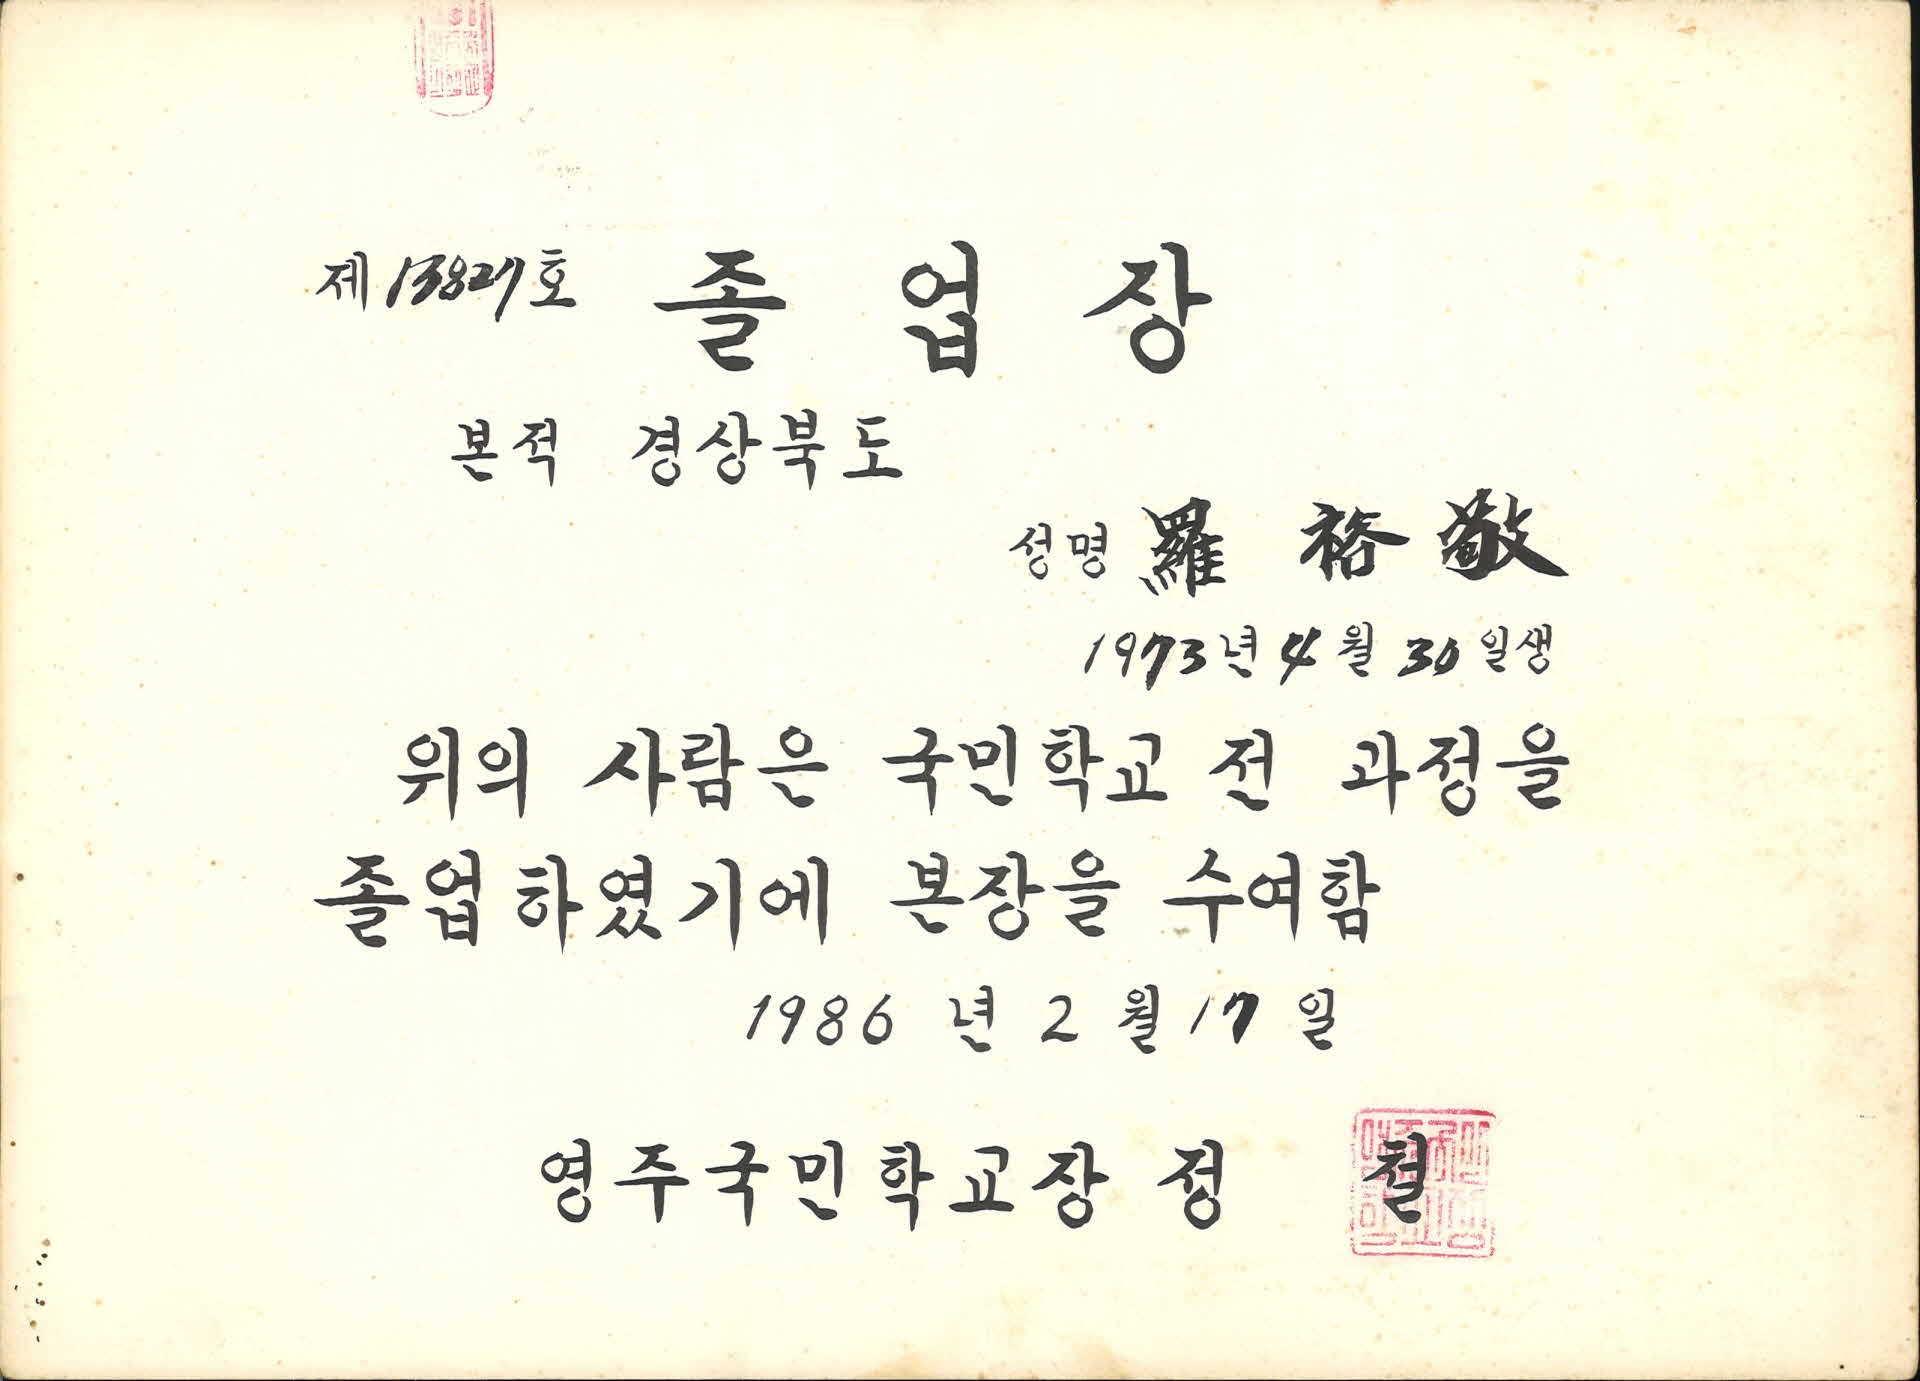 제 13827 호 졸업장
본적 경상북도
성명 羅裕敬
1973년 4월 30일생
위의 사람은 국민학교 전 과정을
졸업하였기에 본장을 수여함
1986년 2월 17일
영주국민학교장 정 철